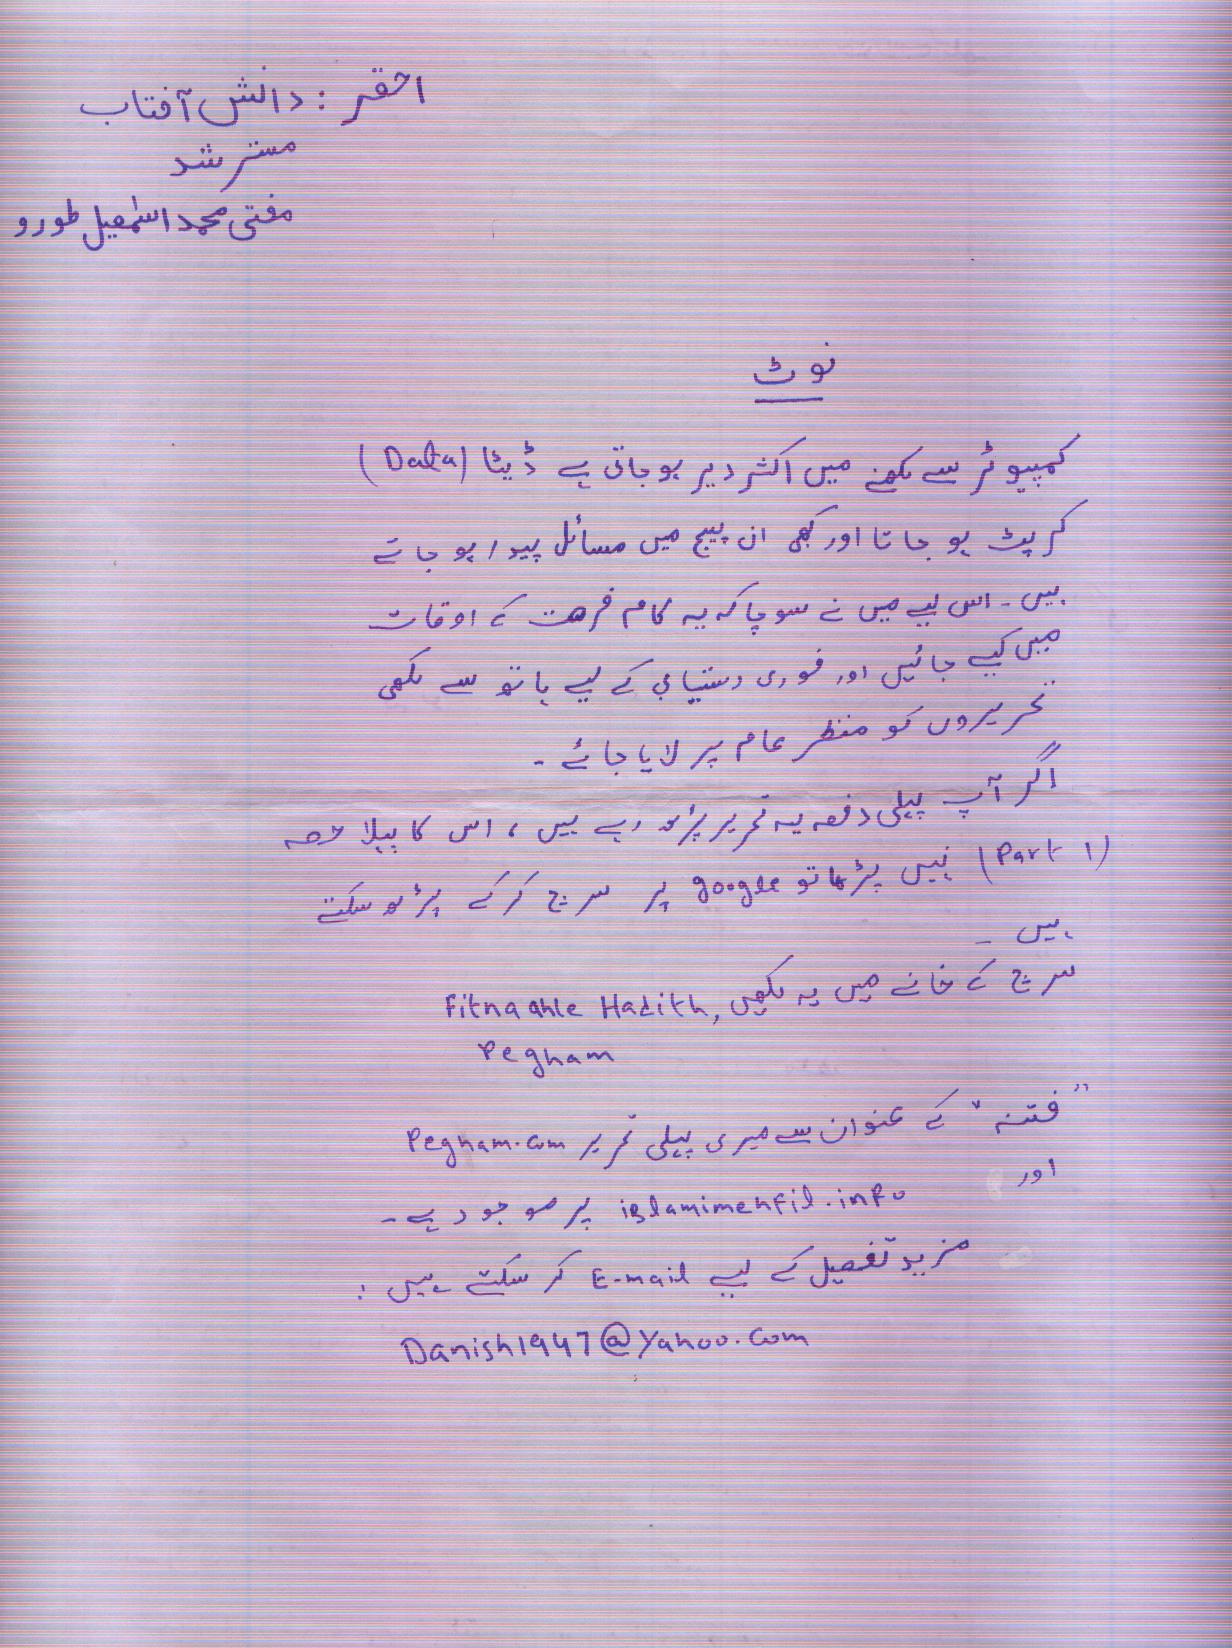 احقر : دانش آفتاب
مسترشد
مفتی محمد اسمٰعیل طورو
نوٹ
کمپیوٹر سے لکھنے میں اکثر دیر ہو جاتی ہے ڈیٹا (Data)
کرپٹ ہو جاتا اور کبھی ان پیج میں مسائل پیدا ہو جاتے
ہیں۔ اس لیے میں نے سوچا کہ یہ کام فرصت کے اوقات
میں کیے جائیں اور فوری دستیابی کے لیے ہاتھ سے لکھی
تحریروں کو منظر عام پر لایا جائے۔
اگر آپ پہلی دفعہ یہ تحریر پڑھ رہے ہیں، اس کا پہلا حصہ
(Part 1) نہیں پڑھا تو google پر سرچ کر کے پڑھ سکتے
ہیں ۔
سرچ کے خانے میں یہ لکھیں, Fitna ahle Hadith
Pegham
”فتنہ“ کے عنوان سے میری پہلی تحریر Pegham.com
اور islamimehfil.info پر موجود ہے۔
مزید تفصیل کے لیے E-mail کر سکتے ہیں :
Danish1947@yahoo.com